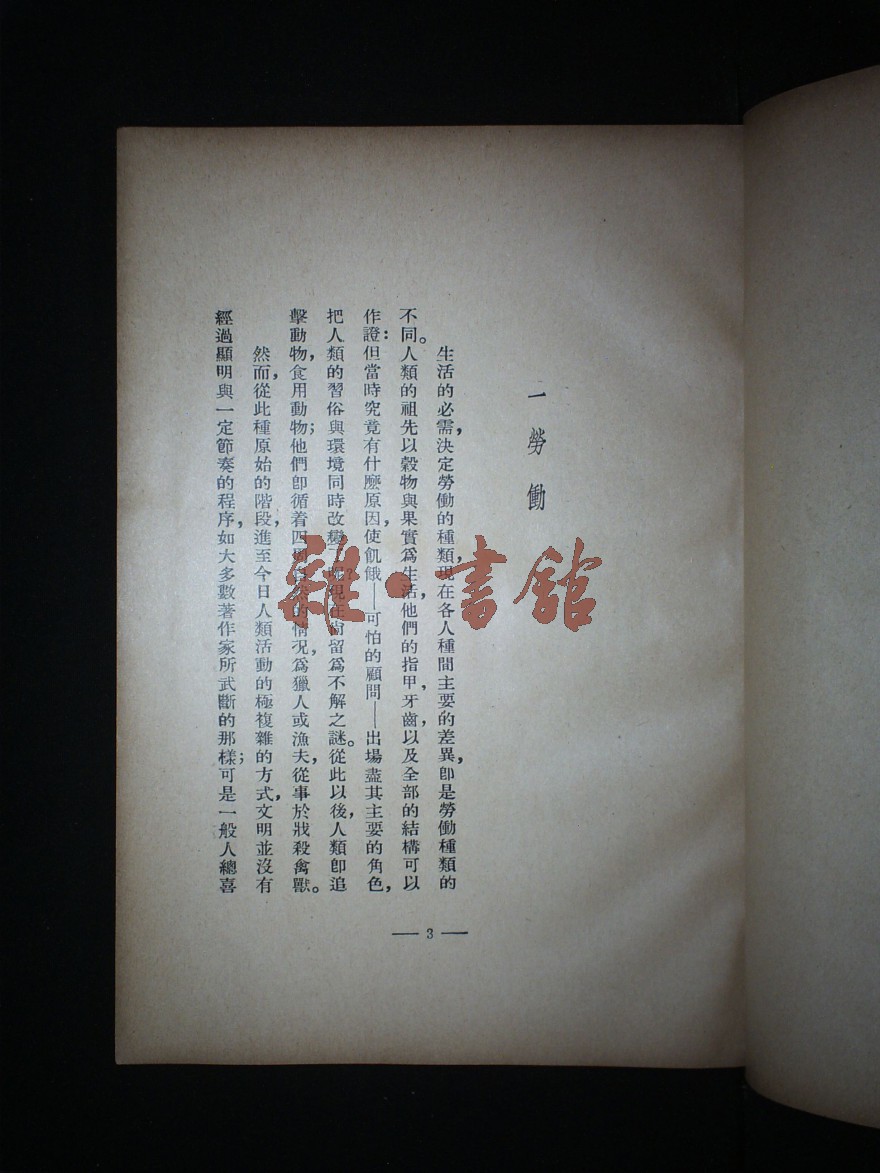 一 勞 働
生活的必需，決定勞働的種類，現在各人種間主要的差異，卽是勞働種類的
不同。人類的祖先以穀物與果實爲生活，他們的指甲，牙齒，以及全部的結構可以
作證：但當時究竟有什麼原因，使飢餓——可怕的顧問——出場盡其主要的角色，
把人類的習俗與環境同時改變呢？現在尙留爲不解之謎。從此以後，人類卽追
擊動物，食用動物；他們卽循着四圍的情況，爲獵人或漁夫，從事於戕殺禽獸。
然而，從此種原始的階段，進至今日人類活動的極複雜的方式，文明並沒有
經過顯明與一定節奏的程序，如大多數著作家所武斷的那樣；可是一般人總喜
— 3 —
雜·書館